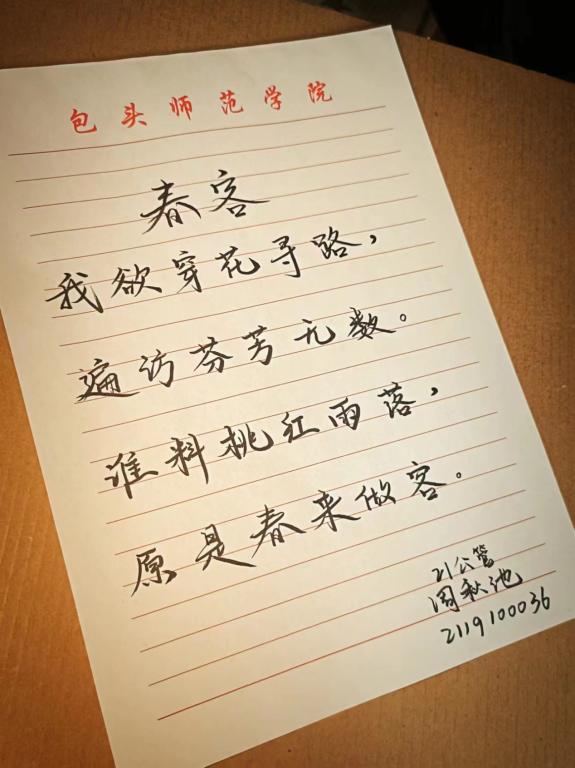 包头师范学院
春客
我欲穿花寻路，
遍访芬芳无数。
谁料桃红雨落，
原是春来做客。
21公管
周秋池
2119100036